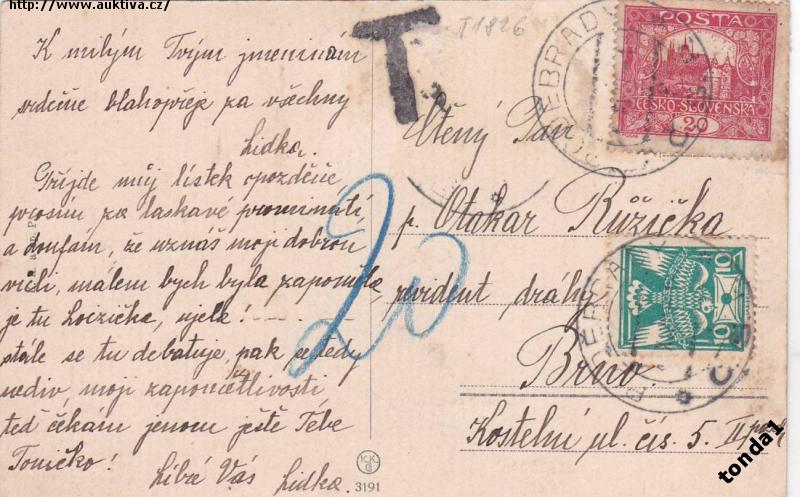 http://www.auktiva.cz/
T
T 1826
K milým Tvým jmeninám
srdečně blahopřeje za všechny
Lidka.
Přijde můj lístek opozděně
prosím za laskavé prominutí
a doufám, že uznáš moji dobrou
vůli, málem bych byla zapomněla,
je tu Lojzička, ujela!
stále se tu debatuje, pak se tedy
nediv, moji zapomětlivosti
teď čekám jenom ještě Tebe
Toničko!
Líbá Vás Lidka.
20
POŠTA
ČESKO-SLOVENSKÁ
20
PODĚBRADY
10 10
PODĚBRADY
Ctěný Pan
p. Otakar Růžička
evident dráhy
Brno.
Kostelní ul. čís. 5. II
3191
tonda1